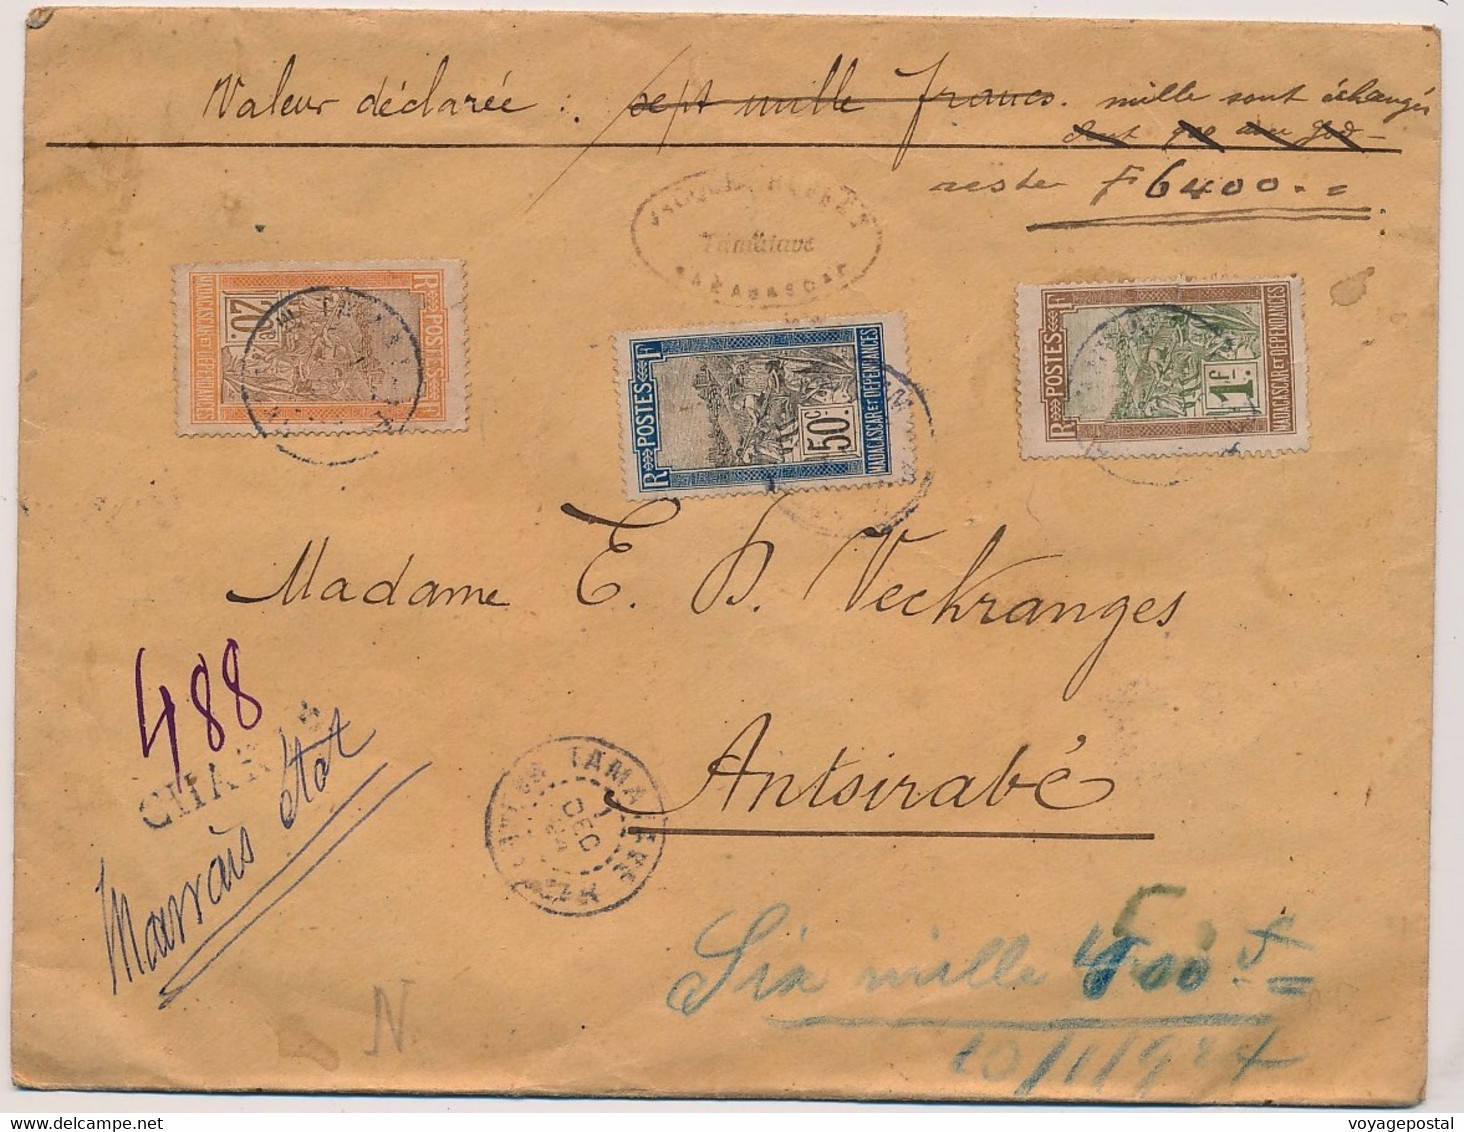 Valeur déclarée : sept mille francs. mille sont échangés
reste F 6400.-=
Tamatave
MADAGASCAR
POSTES
RF
20.
MADAGASCAR ET DÉPENDANCES
POSTES
RF
50c.
MADAGASCAR ET DÉPENDANCES
POSTES
RF
1.f
MADAGASCAR ET DÉPENDANCES
Madame E. D. Veckranges
Antsirabé
488
CHARGÉ
Mauvais état
TAMATAVE
7
DEC
24
Six mille 400 f =
N.
voyagepostal